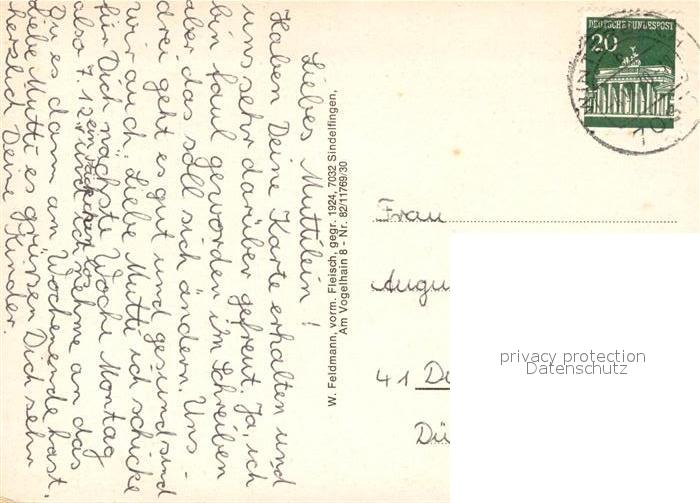 Liebes Muttilein!
Haben Deine Karte erhalten und
uns sehr darüber gefreut. Ja, ich
bin faul geworden im Schreiben
aber das soll sich ändern. Uns
drei geht es gut und gesund sind
wir auch. Liebe Mutti ich schicke
für Dich nächste Woche Montag
also 7.12 ein Päckchen los
und ich nehme an das
Du es dann am Wochenende hast.
Liebe Mutti es grüssen Dich sehr
herzlich Deine Kinder.
W. Feldmann, vorm. Fleisch, gegr. 1924, 7032 Sindelfingen,
Am Vogelhain 8 - Nr. 82/11769/30
DEUTSCHE BUNDESPOST
20
Frau
Augu
41 Du
Dü
privacy protection
Datenschutz